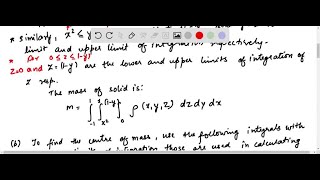 * Similarly x² ≤ y
limit and upper limit of integration respectively.
* Ar 0 ≤ z ≤ 1-y
z=0 and z = (1-y) are the lower and upper limits of integration of
z resp.
The mass of solid is:
m = ∫₋₁¹ ∫ₓ²¹ ∫₀⁽¹⁻ʸ⁾ ρ (x, y, z) dz dy dx
(b) To find the centre of mass, use the following integrals with
those are used in calculating